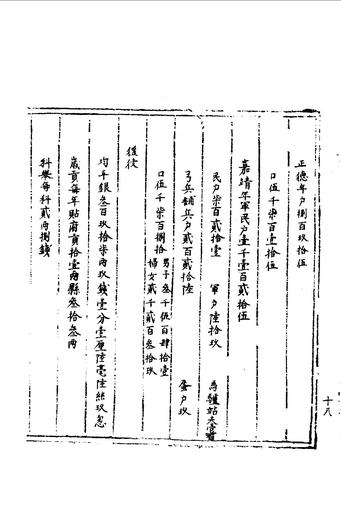 正德年戶捌百玖拾伍
口伍千柒百壹拾伍
嘉靖年軍民戶壹千壹百貳拾伍
民戶柒百貳拾壹 軍戶陸拾玖 馬驢站夫壹百
弓兵鋪兵戶貳百貳拾陸 蛋戶玖
口伍千柒百捌拾 男子叁千伍百肆拾壹
婦女貳千貳百叁拾玖
徭役
均平銀叁百玖拾柒兩玖錢壹分壹厘陸毫陸絲玖忽
歲貢每年貼府貢拾壹兩縣叁拾叁兩
科舉每科貳兩捌錢
十八